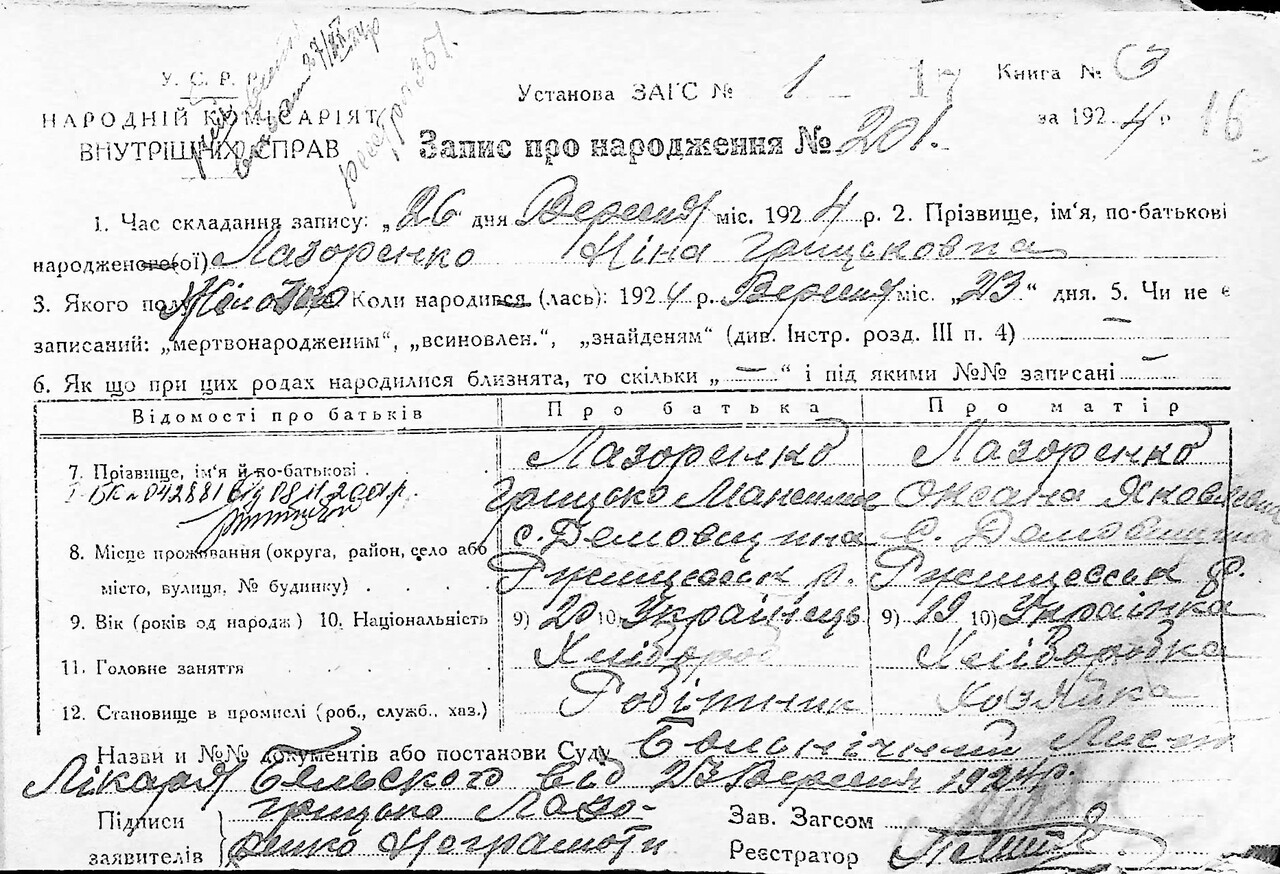 У. С. Р.
НАРОДНІЙ КОМІСАРІЯТ
ВНУТРІШНІХ СПРАВ
Установа ЗАГС № 1 17
Книга № 3
за 1924 р 16
Запис про народження № 201.
1. Час складання запису: „26 дня Вересня міс. 1924 р. 2. Прізвище, ім'я, по-батькові
народженого(ої) Лазоренко Ніна Грицьковна
3. Якого полу Жіночого Коли народився (лась): 1924 р. Вересня міс. „23“ дня. 5. Чи не є
записаний: „мертвонародженим“, „всиновлен.“, „знайденям“ (див. Інстр. розд. III п. 4) —
6. Як що при цих родах народилися близнята, то скільки „—“ і під якими №№ записані —
Відомості про батьків Про батька Про матір
Лазоренко Лазоренко
7. Прізвище, ім'я й по-батькові
Грицько Максимов Оксана Яковлевна
І-БК № 042881 від 08.11.2001р.
с. Демовщина с. Демовщина
8. Місце проживання (округа, район, село або
місто, вулиця, № будинку) Ржищевськ р. Ржищевськ р.
9. Вік (років од народж) 10. Національність 9) 20 10) Українець 9) 19 10) Українка
11. Головне заняття Хлібороб Хлібородка
12. Становище в промислі (роб., служб., хаз.) Робітник Хозяйка
Назви и №№ документів або постанови Суду Больнічний Лист
Лікаря Бельского від 23 Вересня 1924р.
Підписи заявителів Грицько Лазо-
ренко Неграмотн
Зав. Загсом
Реєстратор